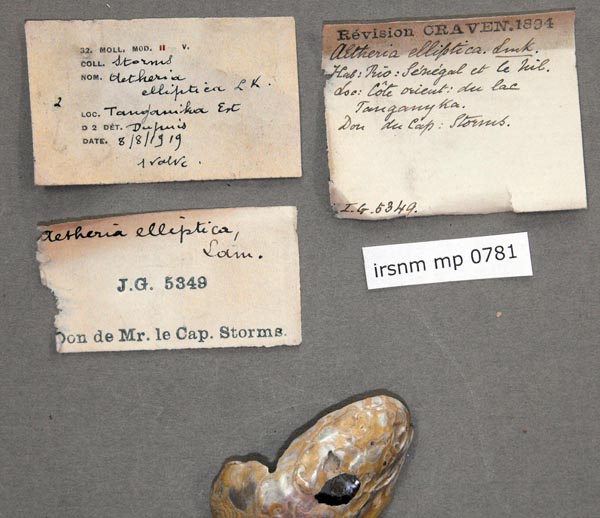 32. MOLL. MOD. II V.
COLL. Storms
NOM. Aetheria
elliptica L K.
2
LOC. Tanganika Est
D 2 DÉT. Dupuis
DATE. 8/8/1919
1 valve.
Révision CRAVEN.1894
Aetheria elliptica. Lmk.
Hab: Rio: Sénégal et le Nil.
Loc: Côte orient: du lac
Tanganyka.
Don du Cap: Storms.
I.G. 5349.
Aetheria elliptica,
Lam.
J.G. 5349
Don de Mr. le Cap. Storms.
irsnm mp 0781